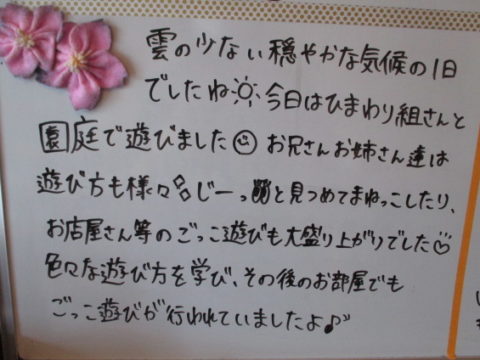 雲の少ない穏やかな気候の1日
でしたね☼今日はひまわり組さんと
園庭で遊びました☺お兄さんお姉さん達は
遊び方も様々じーっと見つめてまねっこしたり、
お店屋さん等のごっこ遊びも大盛り上がりでした♡
色々な遊び方を学び、その後のお部屋でも
ごっこ遊びが行われていましたよ♪